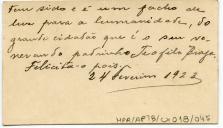 tem sido e é um facho de
luz para a humanidade, do
grande cidadão que é o seu ve-
nerando padrinho Teofilo Braga.
Felicita-o pois,
24 Fevereiro 1922